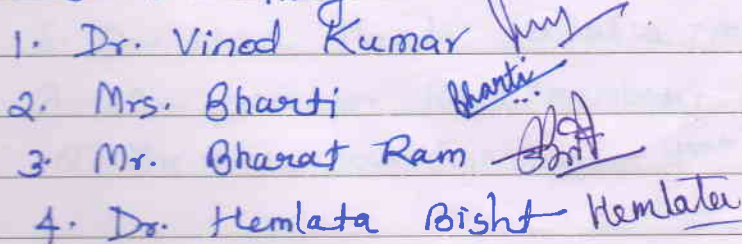 1. Dr. Vinod Kumar
2. Mrs. Bharti Bharti
3. Mr. Bharat Ram
4. Dr. Hemlata Bisht Hemlata